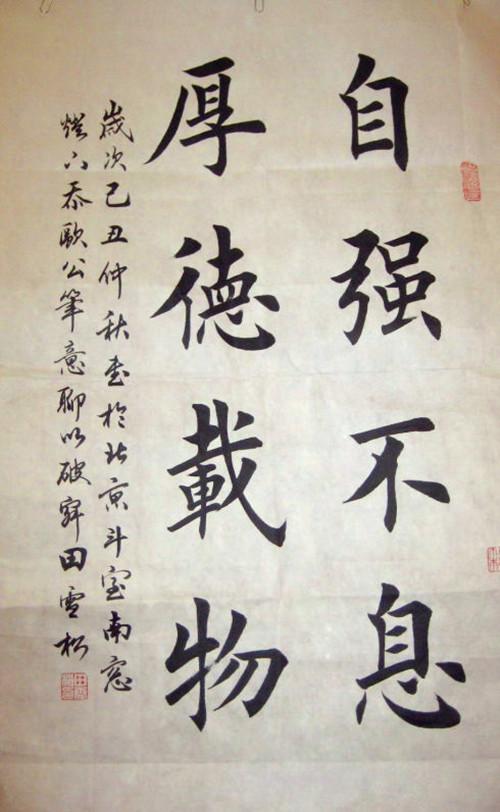 自强不息
厚德載物
歲次己丑仲秋书於北京斗室南窓
燈下忝歐公筆意聊以破寂田雪松